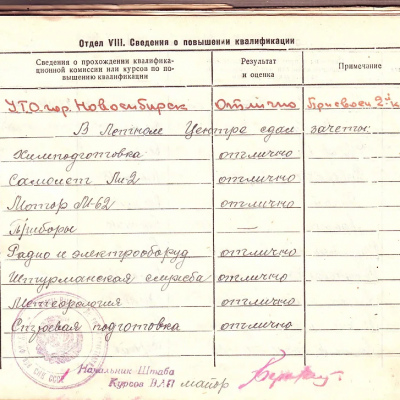 Отдел VIII. Сведения о повышении квалификации
Сведения о прохождении квалифика-
ционной комиссии или курсов по по-
вышению квалификации
Результат
и оценка
Примечание
УТО гор. Новосибирск Отлично Присвоен 2-й
В Летном Центре сдал зачеты:
Химподготовка отлично
Самолет Ли-2 отлично
Мотор М-62 отлично
Приборы —
Радио и электрооборуд отлично
Штурманская служба отлично
Метеорология отлично
Строевая подготовка отлично
Начальник Штаба
Курсов ВЛП майор